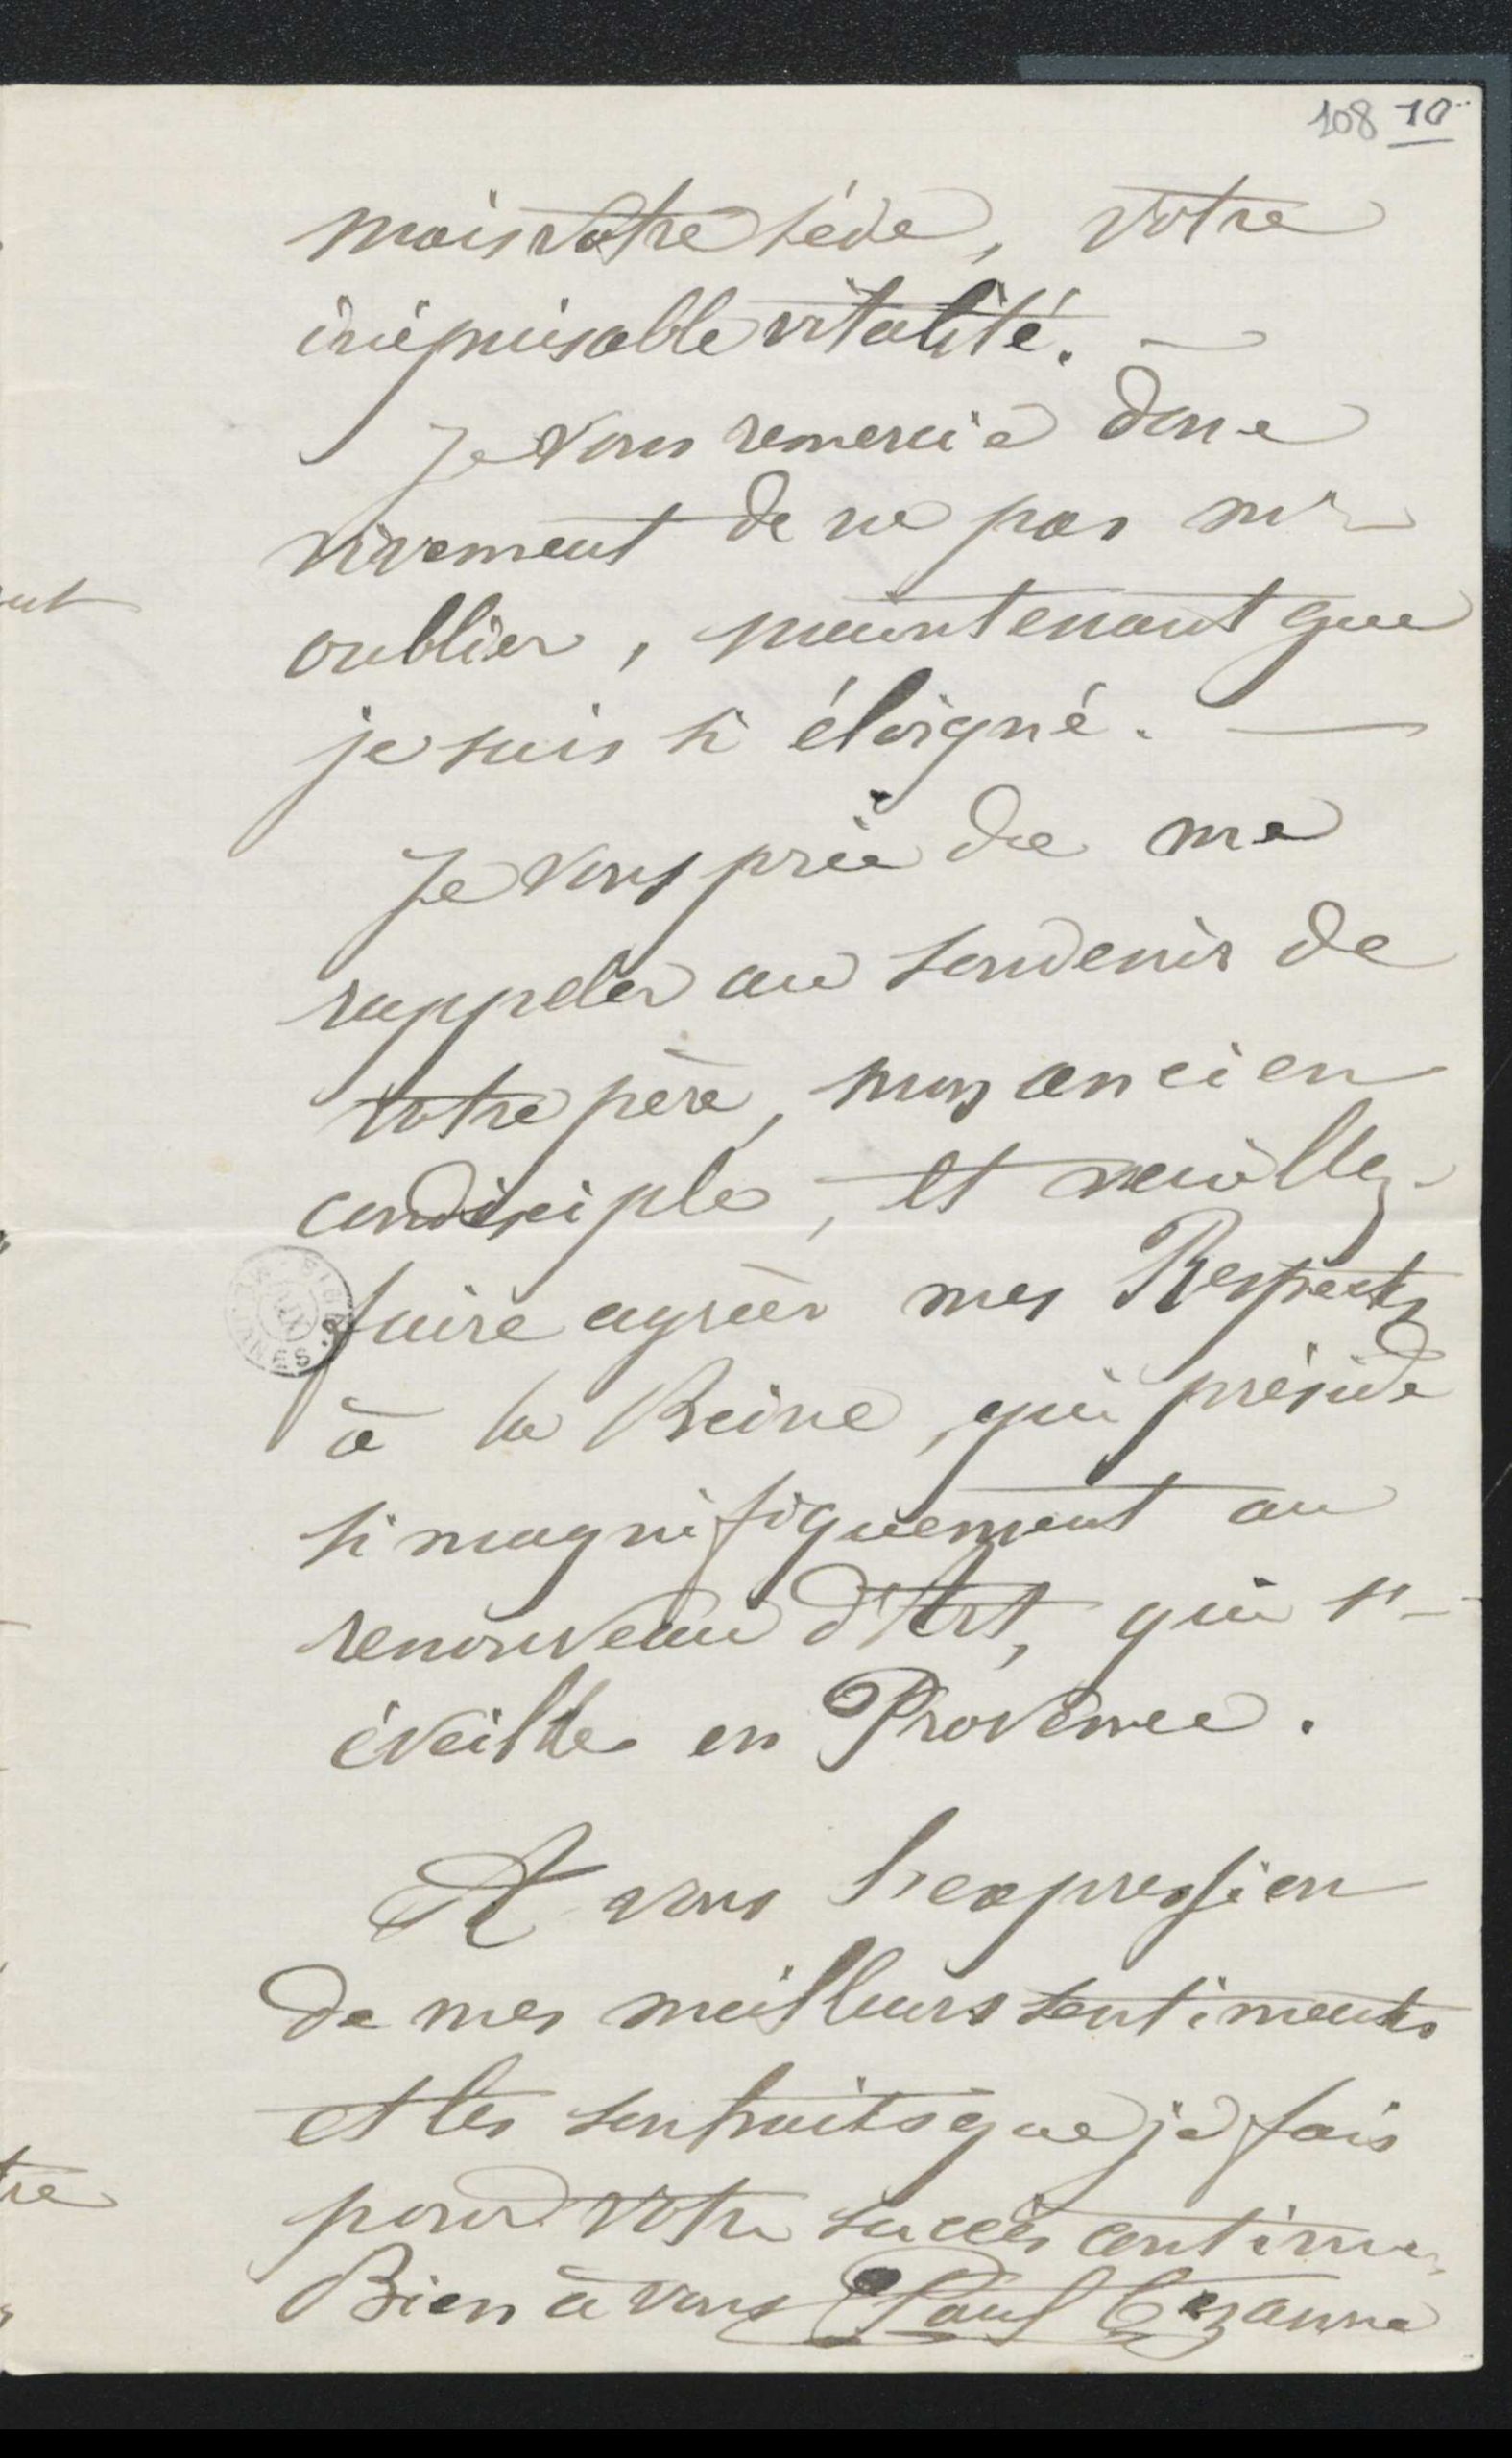 108 10
mais votre sève, votre
inépuisable vitalité. —
Je vous remercie donc
vivement de ne pas m'-
oublier, maintenant que
je suis si éloigné. —
Je vous prie de me
rappeler au souvenir de
votre père, mon ancien
condisciple, et veuillez
faire agréer mes Respects
à la Reine, qui préside
si magnifiquement au
renouveau d'Art, qui s'-
éveille en Provence.
A vous l'expression
de mes meilleurs sentiments
et les souhaits que je fais
pour votre succès continu.
Bien à vous Paul Cezanne
ut
re